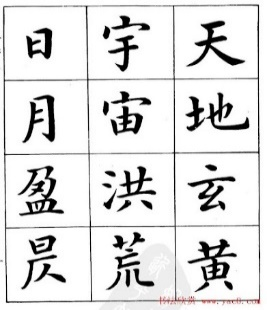 天地玄黄
宇宙洪荒
日月盈昃
书法欣赏 www.yac8.com